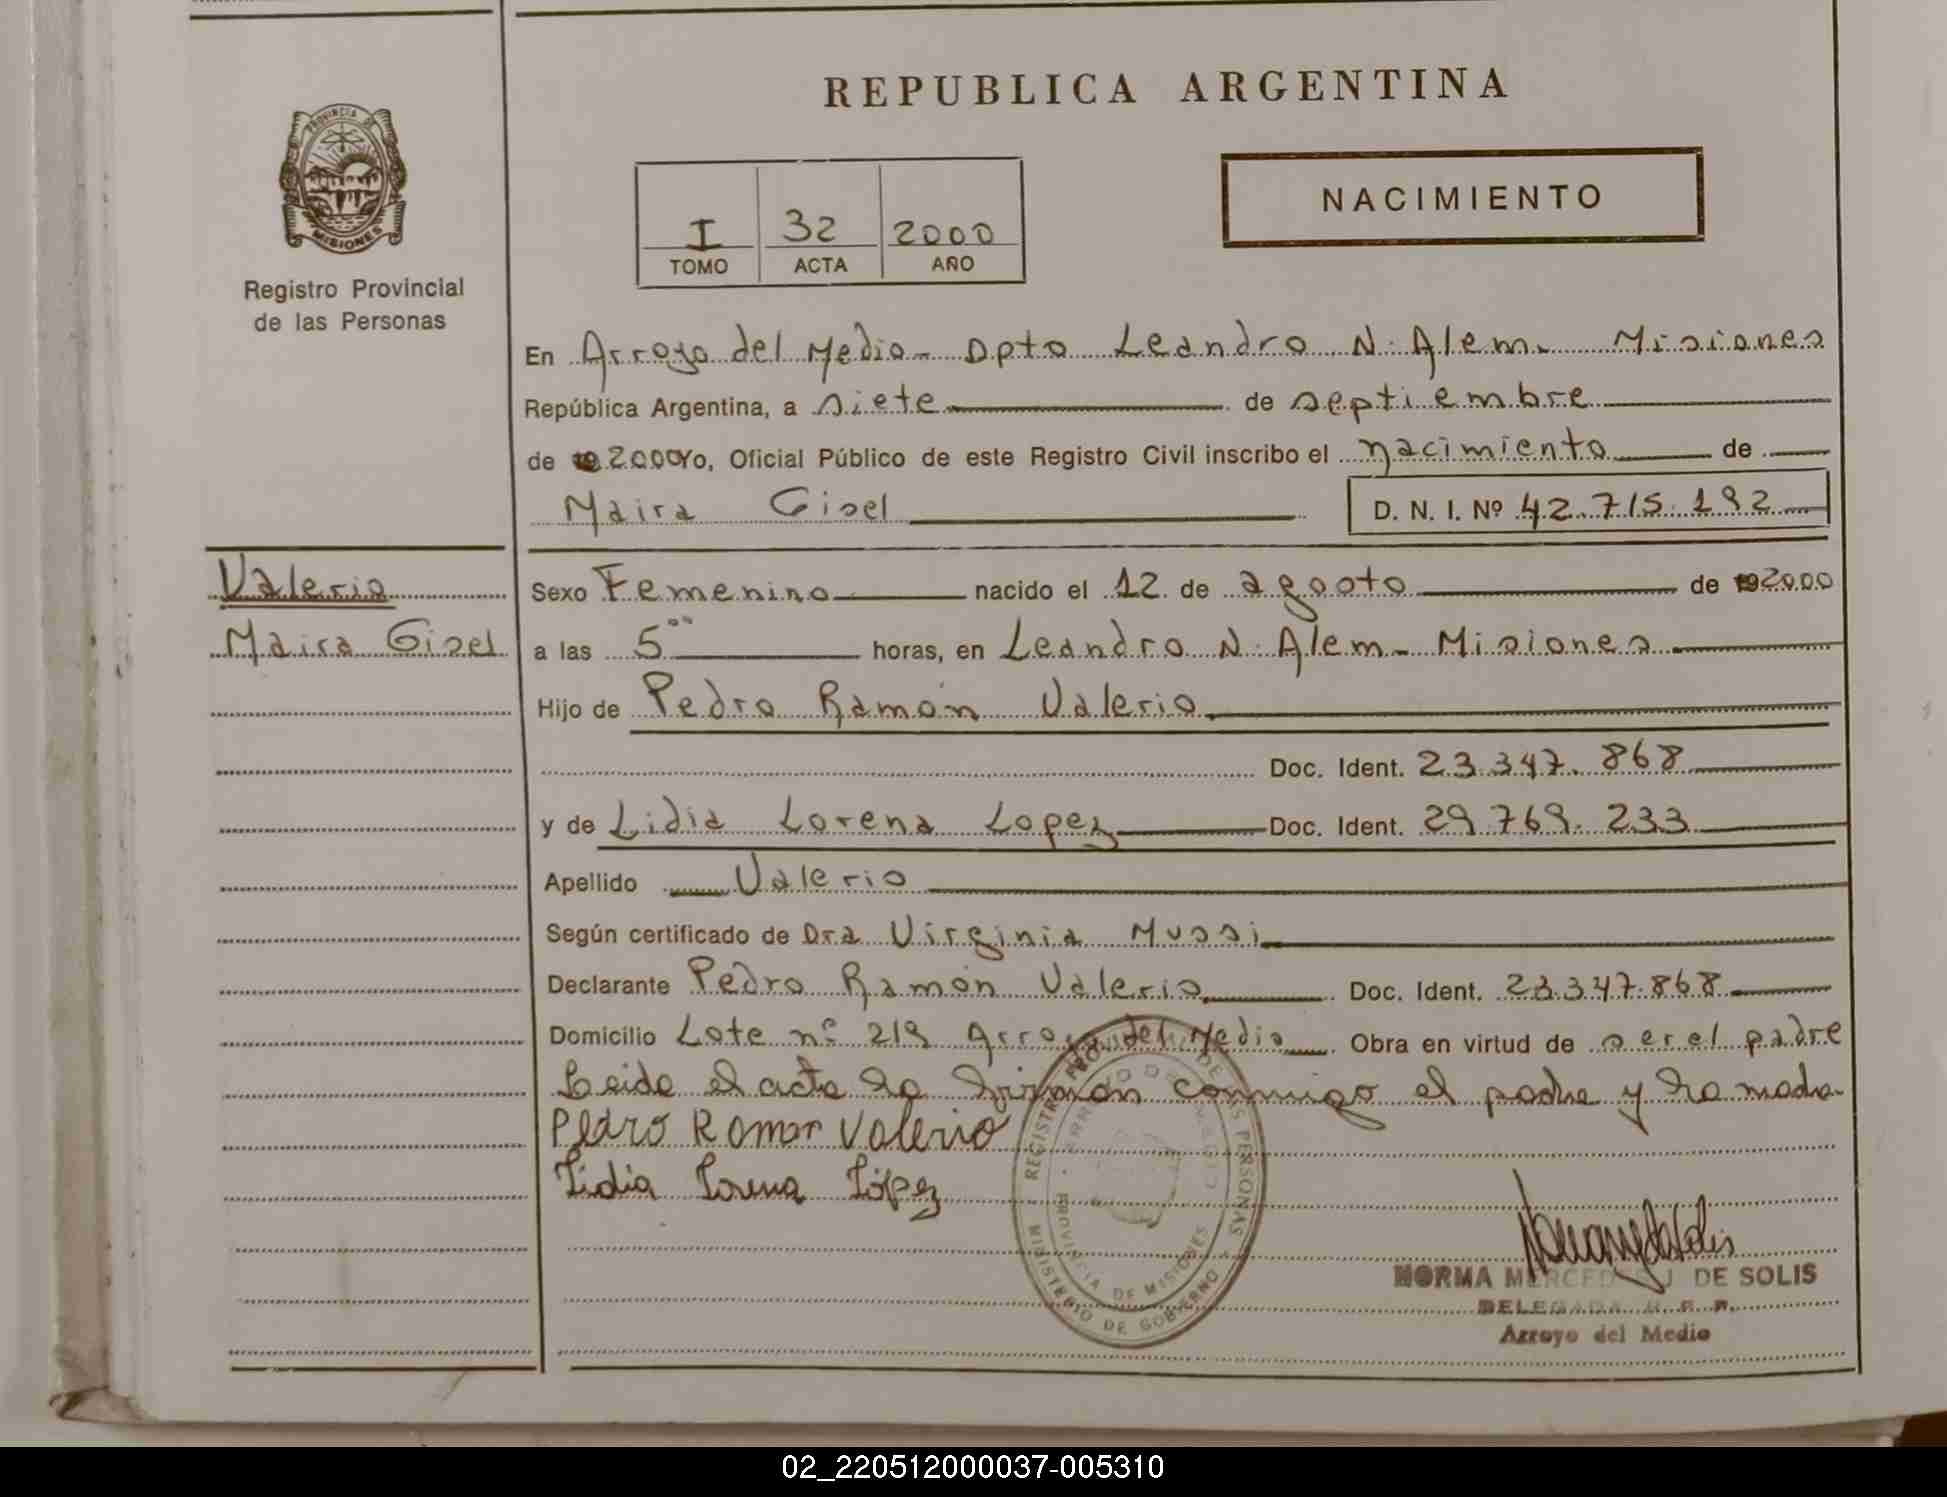 REPUBLICA ARGENTINA
PROVINCIA DE
MISIONES
Registro Provincial
de las Personas
NACIMIENTO
I 32 2000
TOMO ACTA AÑO
En Arroyo del Medio - Dpto Leandro N. Alem - Misiones
República Argentina, a siete de septiembre
de 192000 Yo, Oficial Público de este Registro Civil inscribo el nacimiento de
Maira Gisel D. N. I. Nº 42.715.192
Valerio
Maira Gisel
Sexo Femenino nacido el 12 de agosto de 192000
a las 5°° horas, en Leandro N. Alem - Misiones
Hijo de Pedro Ramón Valerio
Doc. Ident. 23.347.868
y de Lidia Lorena Lopez Doc. Ident. 29.769.233
Apellido Valerio
Según certificado de Dra Virginia Mussi
Declarante Pedro Ramón Valerio Doc. Ident. 23.347.868
Domicilio Lote nº 219 Arroyo del Medio Obra en virtud de ser el padre
Leida el acta la firman conmigo el padre y la madre
Pedro Ramon Valerio
Lidia Lorena López
REGISTRO PROVINCIAL DE LAS PERSONAS
MINISTERIO DE GOBIERNO
PROVINCIA DE MISIONES
NORMA MERCEDES J DE SOLIS
DELEGADA R. P. P.
Arroyo del Medio
02_220512000037-005310